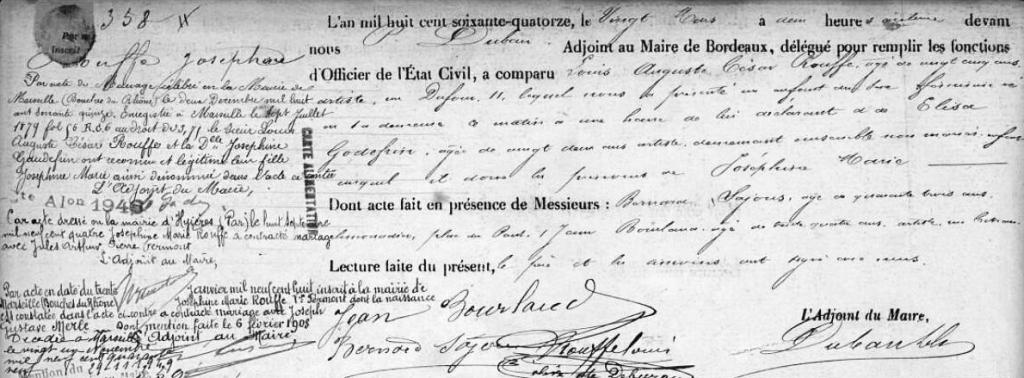 358
Rouffe Josephine
Par acte de Mariage célébré en la Mairie de
Marseille (Bouches du Rhône) le deux Décembre mil huit
cent soixante quinze. Enregistré à Marseille le sept Juillet
1879 fol 56 R. C. 6 au droit de 3,71 le sieur Louis
Auguste César Rouffe et la Dlle Joséphine
Gaudefrin ont reconnu et légitimé leur fille
Joséphine Marie ainsi dénommée dans l'acte ci contre
L'Adjoint du Maire,
1948
CARTE ALIMENTATION
Par acte dressé en la mairie d'Hyères (Var) le huit Septembre
mil neuf cent quatre Joséphine Marie Rouffe a contracté mariage
avec Jules Arthur Pierre Vermont
L'Adjoint au Maire,
Par acte en date du trente Janvier mil neuf cent huit inscrit à la mairie de
Marseille (Bouches du Rhône) Joséphine Marie Rouffe Vve Vermont dont la naissance
est constatée dans l'acte ci contre a contracté mariage avec Joseph
Gustave Merle dont mention faite le 6 février 1908
Décédée à Marseille L'Adjoint au Maire
le vingt un Novembre
mil neuf cent quarante
L'an mil huit cent soixante-quatorze, le Vingt Mars à deux heures devant
nous P. Duban Adjoint au Maire de Bordeaux, délégué pour remplir les fonctions
d'Officier de l'État Civil, a comparu Louis Auguste César Rouffe, agé de vingt cinq ans,
artiste, rue Dufour, 11, lequel nous a présenté un enfant du sexe féminin né
en sa demeure à matin à une heure de lui déclarant et de Elisa
Godefrin, agée de vingt deux ans artiste, demeurant ensemble non mariés, enfant
auquel il donne les prénoms de Joséphine Marie
Dont acte fait en présence de Messieurs : Bernard Sajous, agé de quarante trois ans,
limonadier, place du Pont, 1 Jean Bourlaud, agé de trente quatre ans, artiste,
Lecture faite du présent, le père et les témoins ont signé avec nous.
Jean Bourlaud
Bernard Sajous Rouffe Louis
L'Adjoint du Maire,